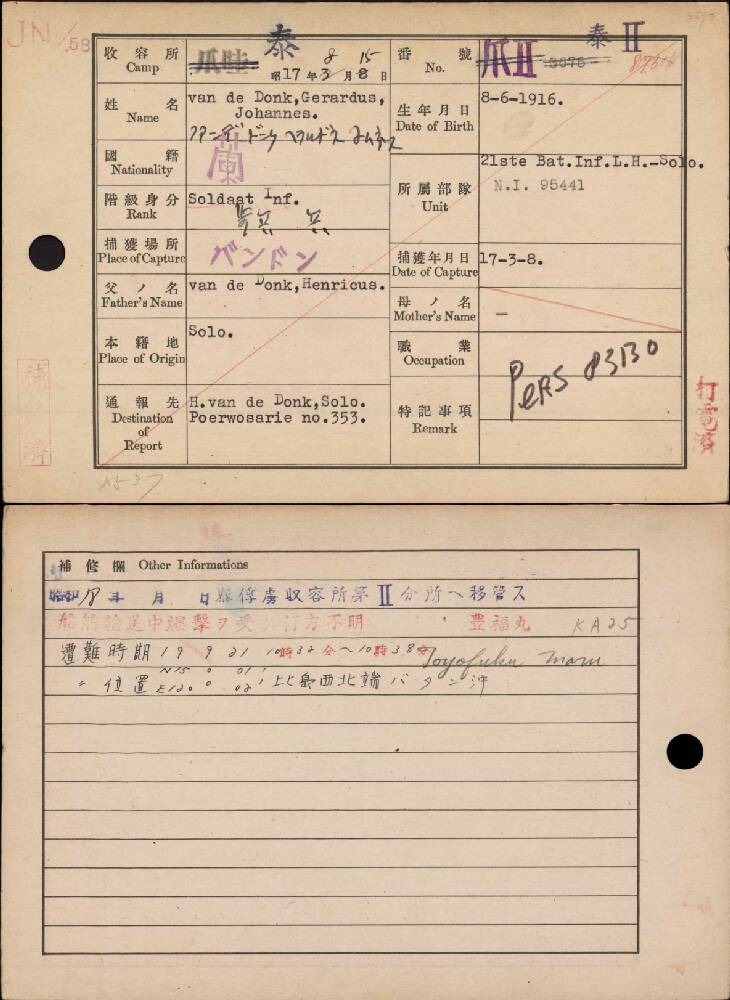 JN/58
收容所
Camp
爪哇 泰
昭17年3月8日
8 15
番號
No.
爪II 泰II
姓名
Name
van de Donk,Gerardus,
Johannes.
生年月日
Date of Birth
8-6-1916.
國籍
Nationality
蘭
所屬部隊
Unit
21ste Bat.Inf.L.H.-Solo.
N.I. 95441
階級身分
Rank
Soldaat Inf.
捕獲場所
Place of Capture
バンドン
捕獲年月日
Date of Capture
17-3-8.
父ノ名
Father's Name
van de Donk,Henricus.
母ノ名
Mother's Name
—
本籍地
Place of Origin
Solo.
職業
Occupation
Pers 83130
通報先
Destination
of
Report
H.van de Donk,Solo.
Poerwosarie no.353.
特記事項
Remark
打電濟
補修欄 Other Informations
昭和18年 月 日 俘虜収容所第II分所ヘ移管ス
船舶輸送中爆撃ヲ受ケ行方不明 豊福丸 KA25
遭難時期 19 9 21 10時32分〜10時38分 Toyofuku Maru
〃 位置 N15° 01' E120° 02' 比島西北端バタン沖